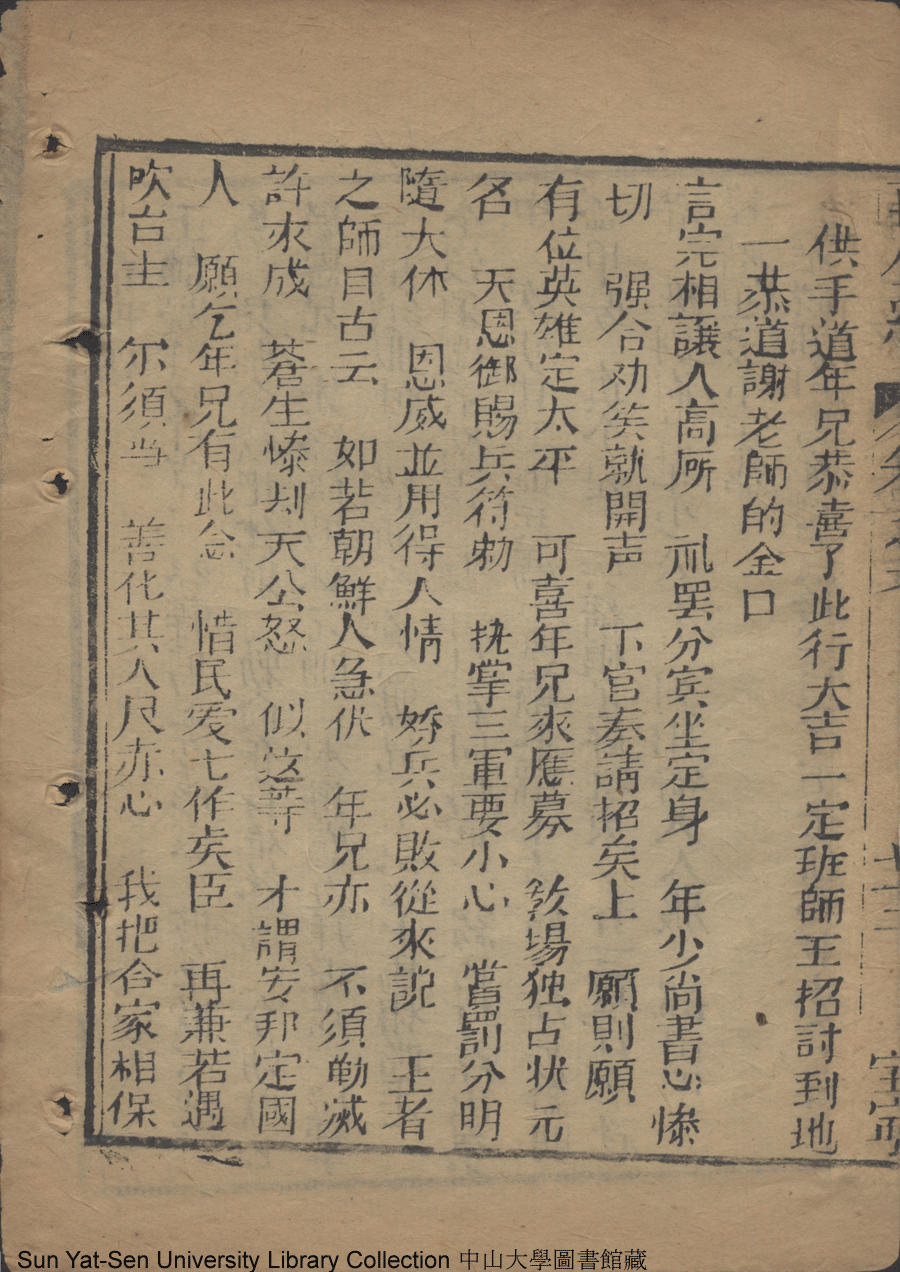 供手道年兄恭喜了此行大吉一定班師王招討到地
一恭道謝老師的金口
言完相讓人高所 礼罢分宾坐定身 年少尚書心惨
切 强合劝矣就開声 下官奏請招矣上 願則願
有位英雄定太平 可喜年兄來應募 教場独占状元
名 天恩御賜兵符勅 执掌三軍要小心 嘗罰分明
隨大休 恩威並用得人情 娇兵必敗從來説 王者
之師目古云 如若朝鮮人急伏 年兄亦 不須勦滅
許求成 蒼生惨刦天公怒 似这等 才謂安邦定國
人 願乞年兄有此念 惜民爱七作矣臣 再兼若遇
吹台主 尔须当 善化其人尺亦心 我把合家相保
Sun Yat-Sen University Library Collection 中山大學圖書館藏